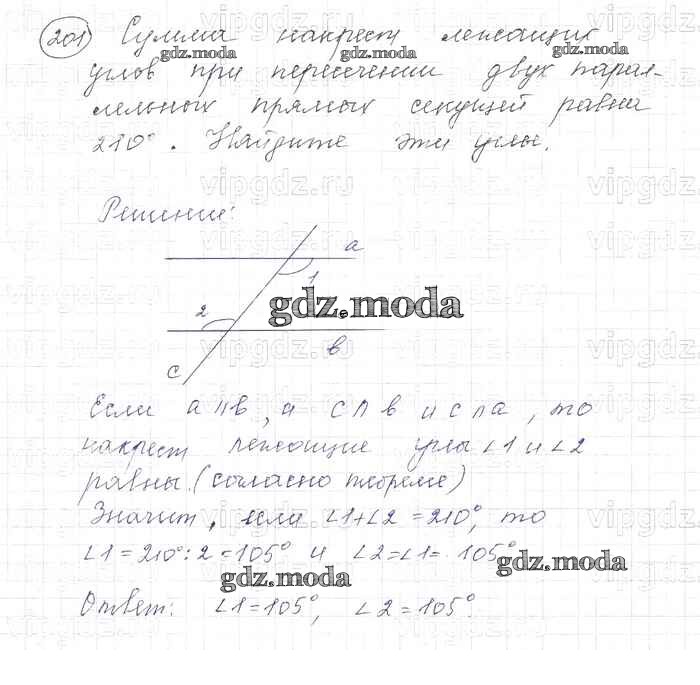 201 Сумма накрест лежащих
углов при пересечении двух парал-
лельных прямых секущей равна
210°. Найдите эти углы.
Решение:
a
1
2
в
c
Если a || в, и c ∩ в и c ∩ a, то
накрест лежащие углы ∠1 и ∠2
равны. (согласно теореме)
Значит, если ∠1+∠2 = 210°, то
∠1 = 210° : 2 = 105° и ∠2=∠1= 105°
Ответ: ∠1 = 105°, ∠2 = 105°.
gdz.moda
gdz.moda
gdz.moda
gdz.moda
gdz.moda
gdz.moda
vipgdz.ru